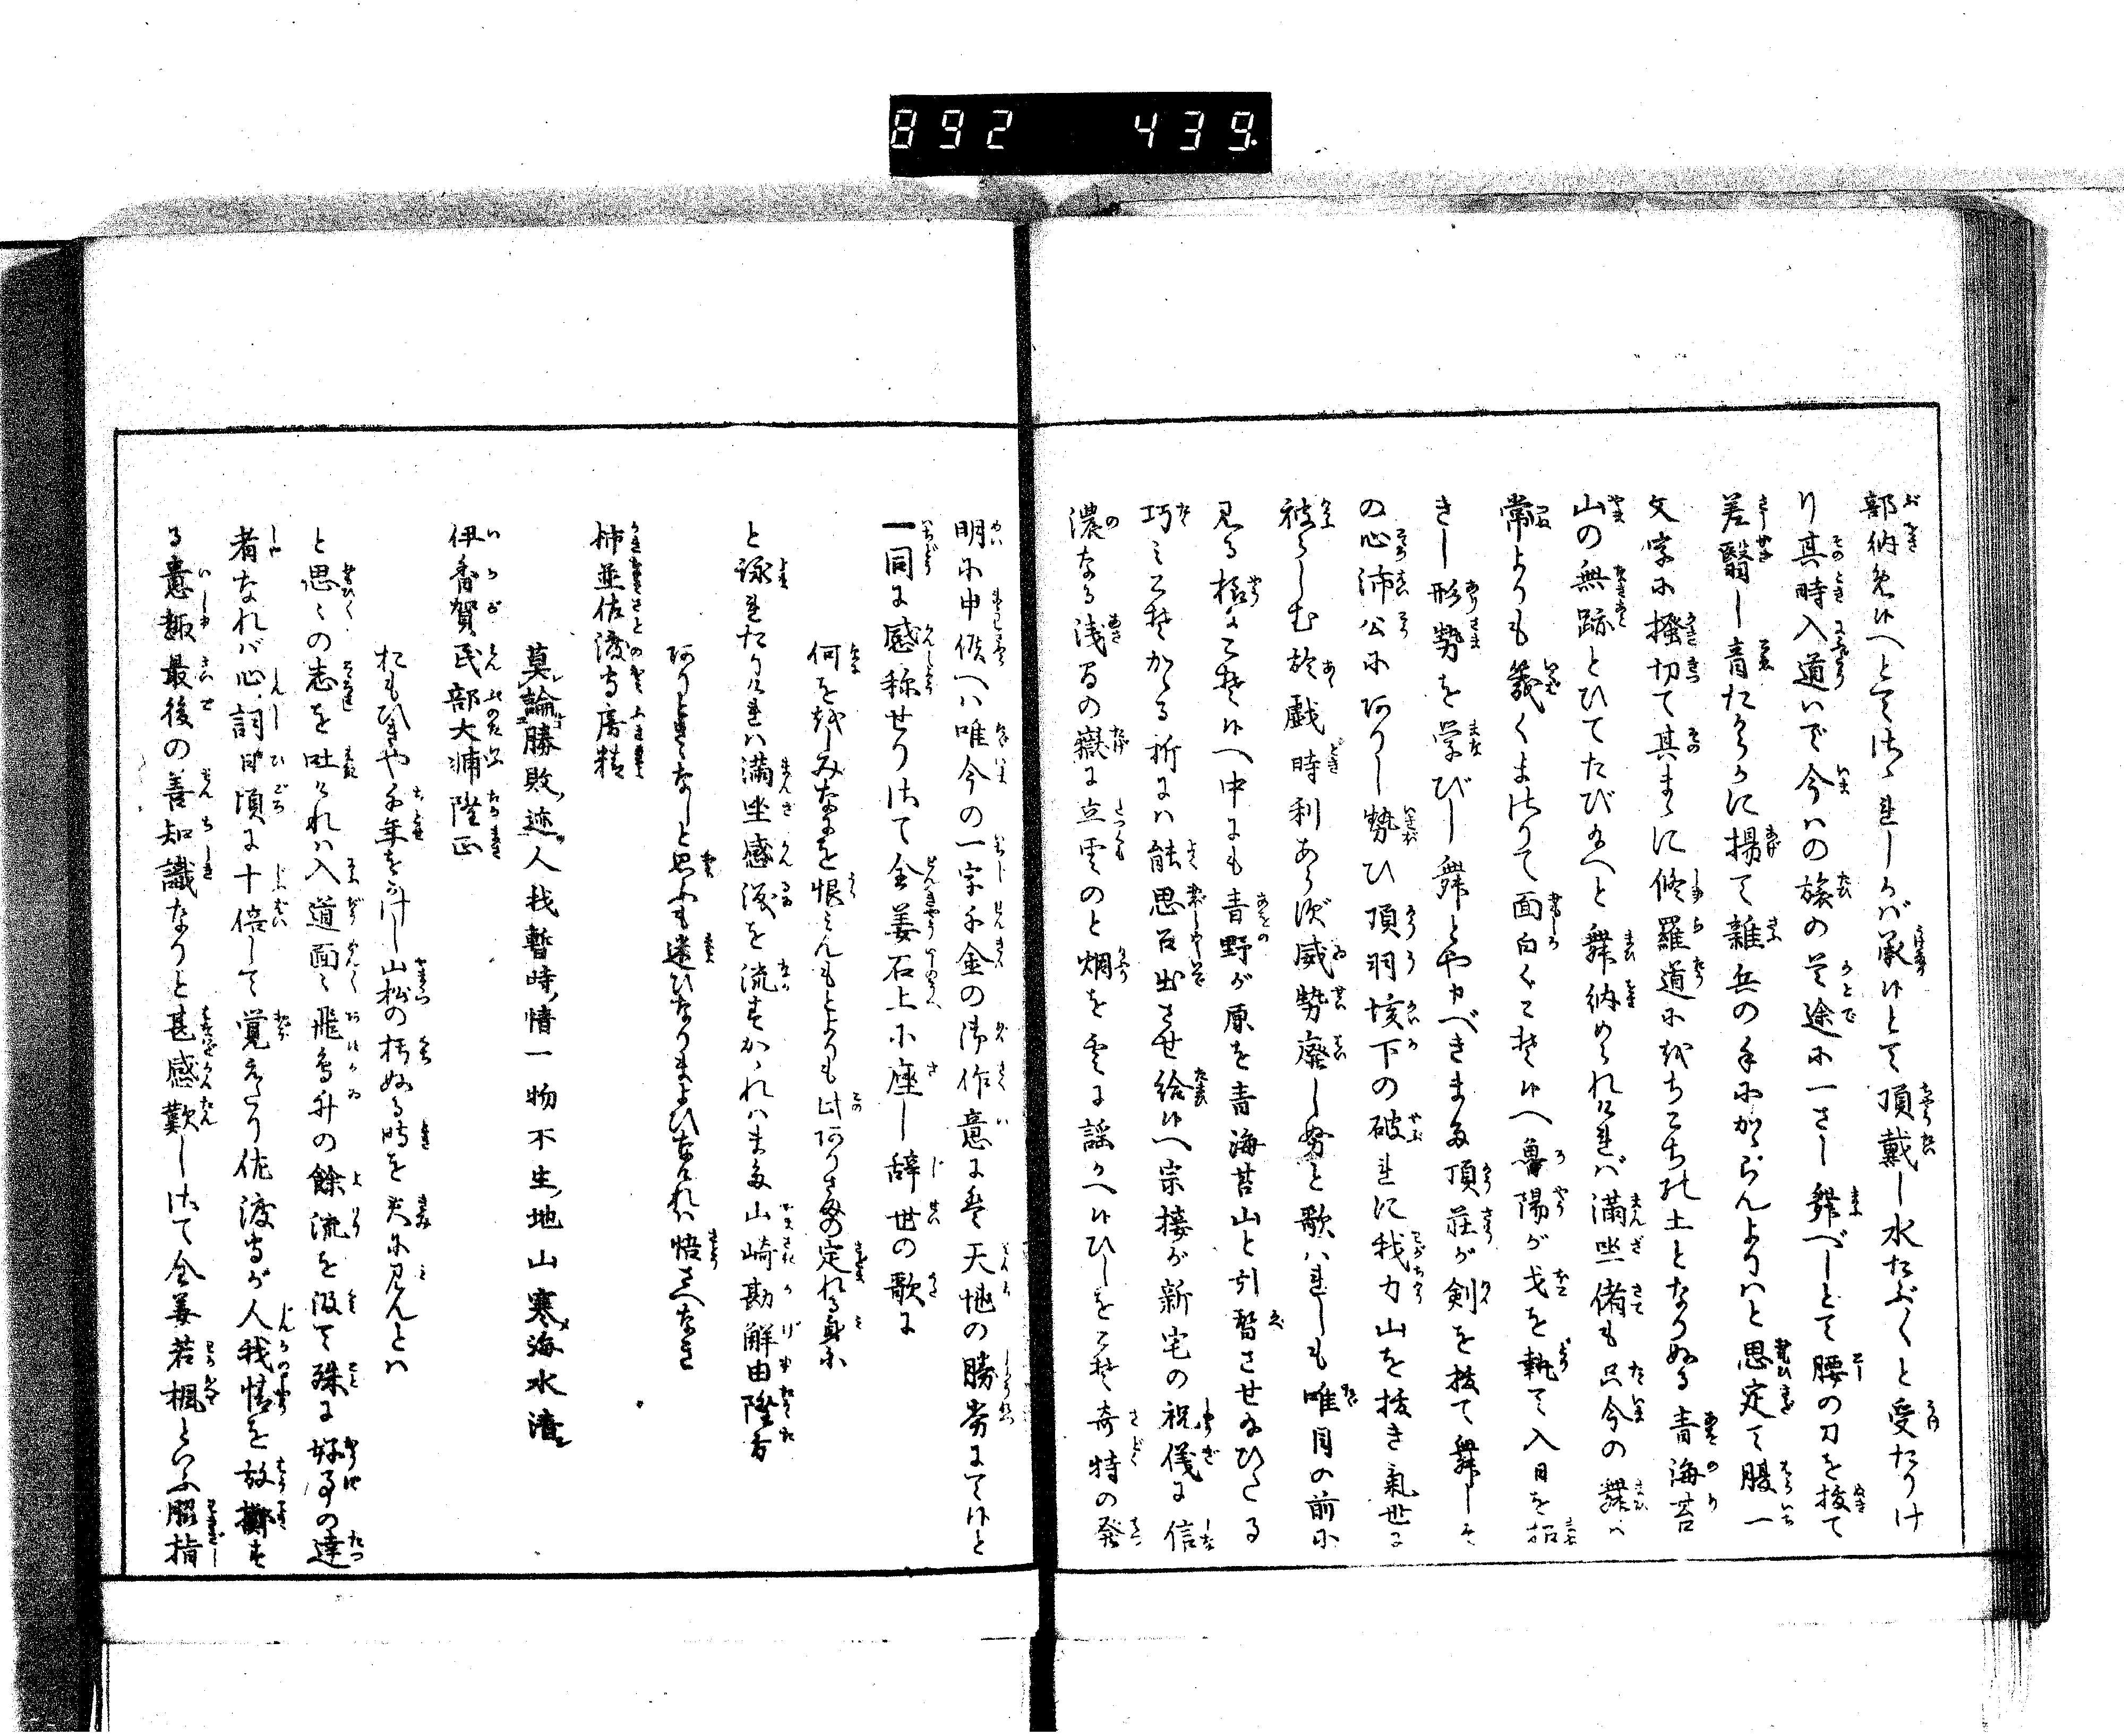 892 439.
部納め候へとて注れしかバ承候とて頂戴し水たぶ〱と受たりけ
り其時入道いで今ハの旅の首途に一さし舞べしとて腰の刀を抜て
差翳し音たからかに揚て雑兵の手にかゝらんよりハと思定て腹一
文字に掻切て其まゝに修羅道におちこち乃土となりぬる青海苔
山の無跡とひてたび給へと舞納められけれバ満坐偖も只今の舞ハ
常よりも幾くまさりて面白くこそ候へ魯陽が戈を執て入日を招
きし形勢を学びし舞とや申べきまた項荘が剣を抜て舞しそ
の心沛公にありし勢ひ項羽垓下の破れに我力山を抜き氣世を
被らしむ於戯時利あらず威勢廃し努と歌ハれしも唯目の前に
見る様にこそ候へ中にも青野が原を青海苔山と引替させ給ひたる
巧ミこそかゝる折にハ能思召出させ給候へ宗接が新宅の祝儀に信
濃なる浅間の嶽に立雲のと烟を雲に謡かへ候ひしをこそ奇特の発
明に申候へハ唯今の一字千金の御作意にそ天地の勝劣にて候と
一同に感称せりさて全姜石上に座し辞世の歌に
何を惜しみなにを恨ミんもとよりも此ありさまの定れる身に
と詠れたりけれハ満坐感涙を流すかゝれハまた山崎勘解由隆方
ありときゝなしと思ふも迷ひなりまよひなけれハ悟さへなき
柿並佐渡守房精
莫論勝敗迹人我暫時情一物不生地山寒海水清
伊香賀民部大輔隆正
おもひきや千年をかけし山松の朽ぬる時を君に見んとハ
と思ひ〱の志を吐られハ入道面〻飛鳥井の餘流を汲て殊に好事の達
者なれバ心詞日頃に十倍して覚えたり佐渡守が人我情を放擲す
る意趣最後の善知識なりと甚感歎しさて全姜若楓といふ脇指